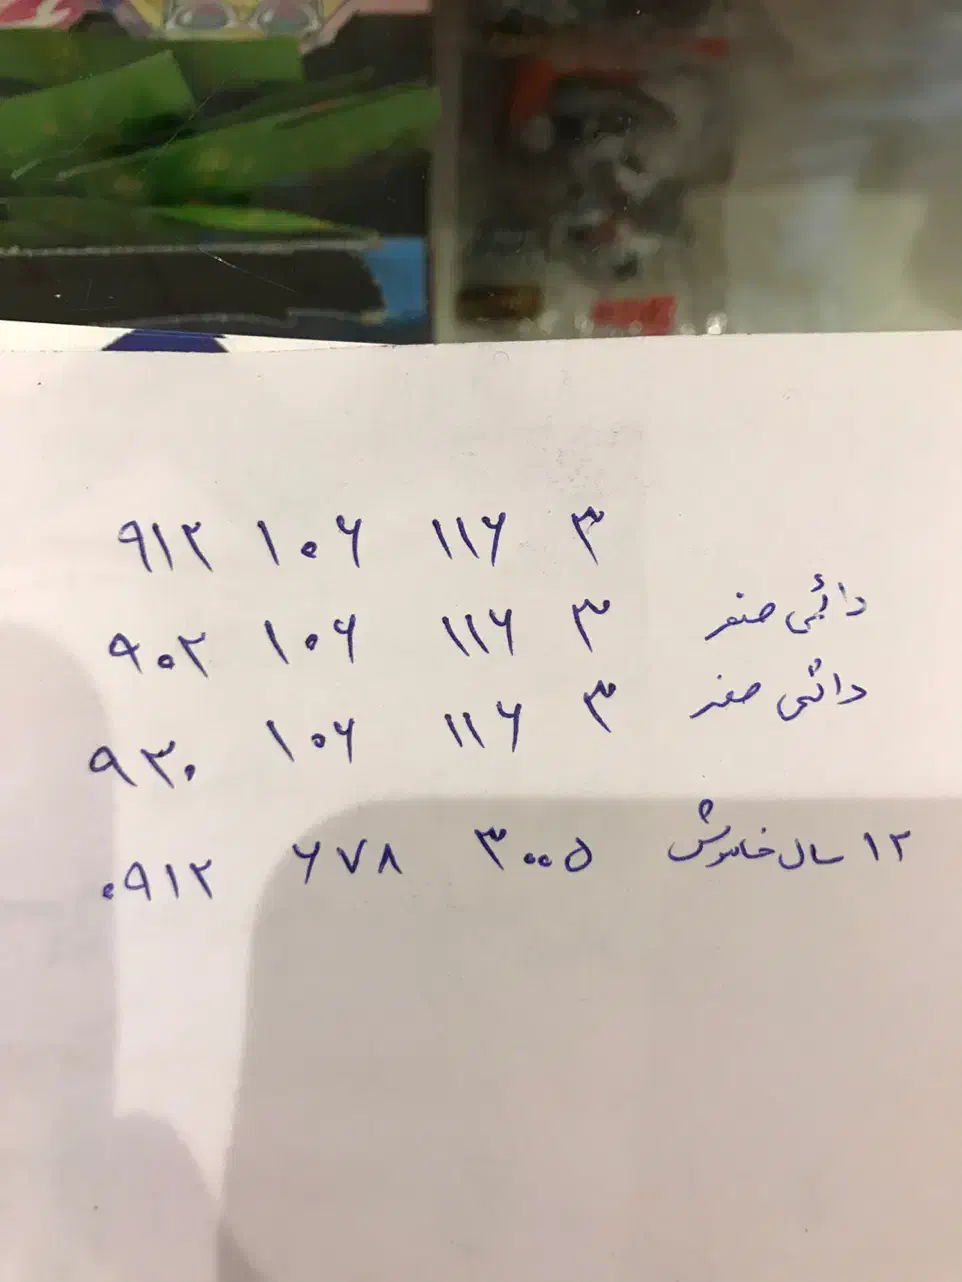 ۹۱۲ ۱۰۶ ۱۱۶ ۳
۹۰۲ ۱۰۶ ۱۱۶ ۳ دائی صفر
۹۳۰ ۱۰۶ ۱۱۶ ۳ دائی صفر
۰۹۱۲ ۶۷۸ ۳۰۰۵ ۱۲ سال خاموش